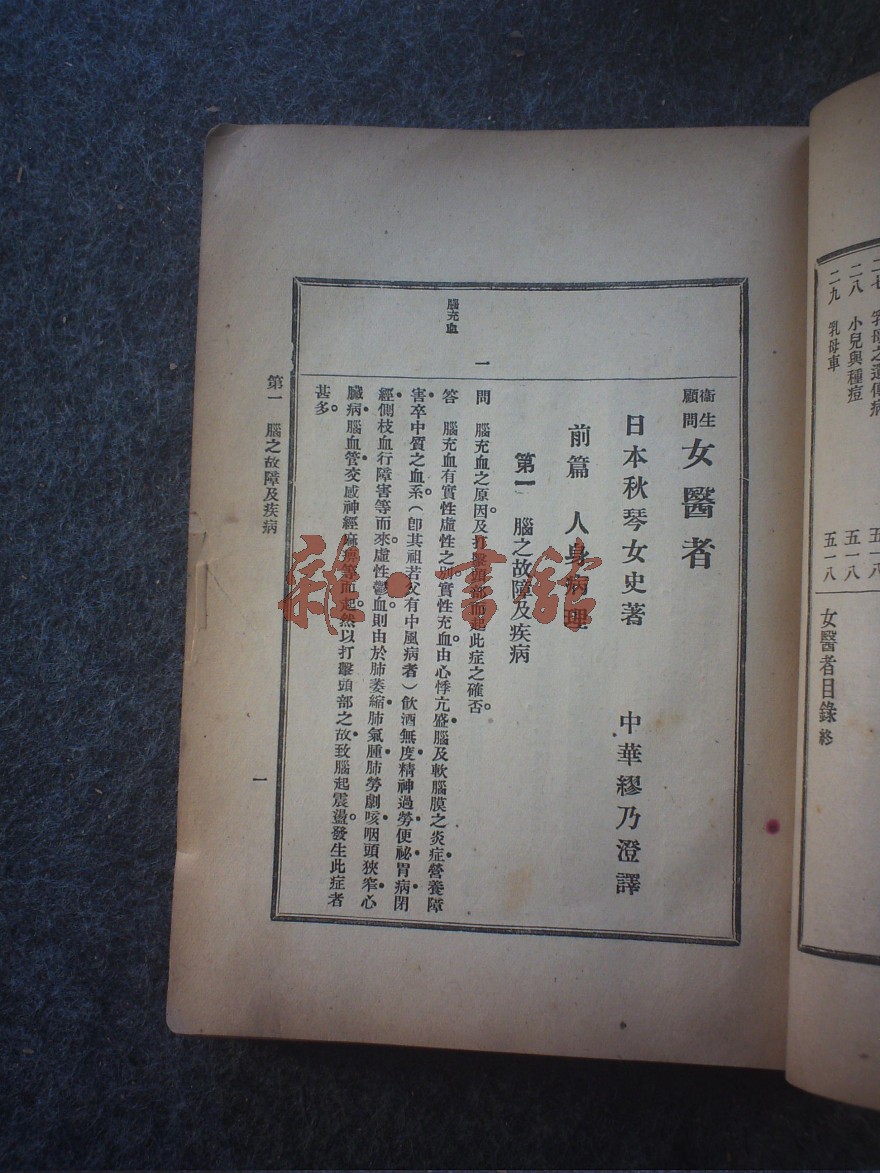 二八 小兒與種痘 五一八
二九 乳母車 五一八
女醫者目錄 終
衞生顧問 女醫者
日本秋琴女史著 中華繆乃澄譯
前篇 人身病理
第一 腦之故障及疾病
腦充血
一
問 腦充血之原因及打擊頭部而起此症之確否。
答 腦充血有實性虛性之別。實性充血。由心悸亢盛。腦及軟腦膜之炎症。營養障
害卒中質之血系。(卽其祖若父有中風病者)飲酒無度。精神過勞。便祕。胃病。閉
經。側枝血行障害等而來。虛性鬱血。則由於肺萎縮。肺氣腫。肺勞。劇咳。咽頭狹窄。心
臟病。腦血管交感神經麻痺等而起。然以打擊頭部之故。致腦起震盪。發生此症者
甚多。
第一 腦之故障及疾病
一
雜·書館